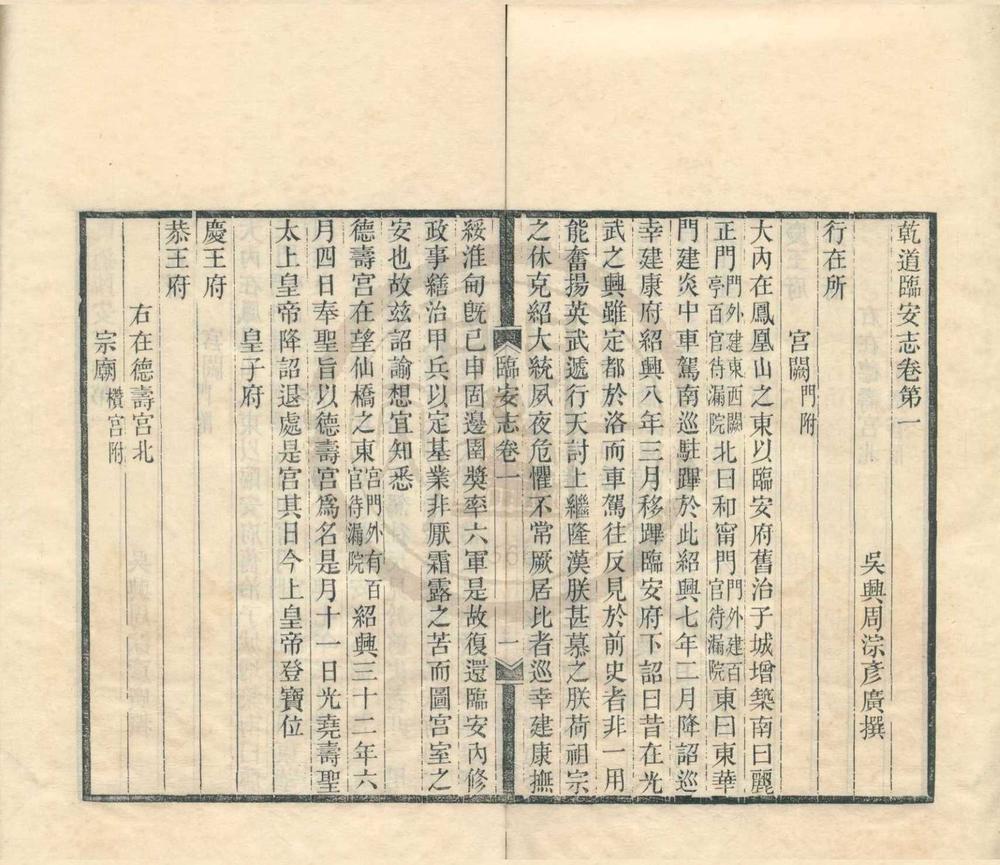 乾道臨安志卷第一
吳興周淙彥廣撰
行在所
宮闕門附
大內在鳳凰山之東以臨安府舊治子城增築南曰麗
正門門外建東西闕亭百官待漏院北曰和甯門門外建百官待漏院東曰東華
門建炎中車駕南巡駐蹕於此紹興七年二月降詔巡
幸建康府紹興八年三月移蹕臨安府下詔曰昔在光
武之興雖定都於洛而車駕往反見於前史者非一用
能奮揚英武遞行天討上繼隆漢朕甚慕之朕荷祖宗
之休克紹大統夙夜危懼不常厥居比者巡幸建康撫
臨安志卷一
一
綏淮甸旣已申固邊圉奬率六軍是故復還臨安內修
政事繕治甲兵以定基業非厭霜露之苦而圖宮室之
安也故兹詔諭想宜知悉
德壽宮在望仙橋之東宮門外有百官待漏院紹興三十二年六
月四日奉聖旨以德壽宮爲名是月十一日光堯壽聖
太上皇帝降詔退處是宮其日今上皇帝登寶位
皇子府
慶王府
恭王府
右在德壽宮北
宗廟欑宮附